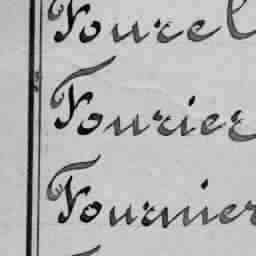 Fourel
Fourier
Fournier